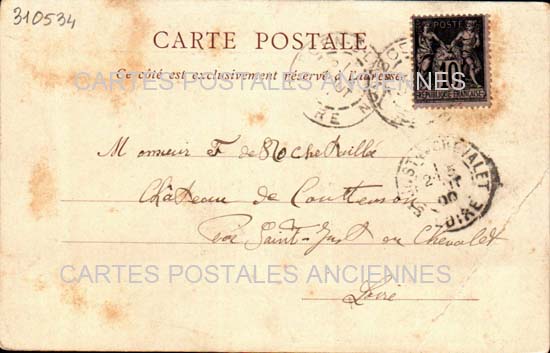 310534
CARTE POSTALE
Ce côté est exclusivement réservé à l'adresse
POSTE
10
REPUBLIQUE FRANÇAISE
CARTES POSTALES ANCIENNES
Monsieur F de Rochetaillée
Château de Couttenson
ST-JUST-EN-CHEVALET
LOIRE
par Saint-Just en Chevalet
CARTES POSTALES ANCIENNES
Loire